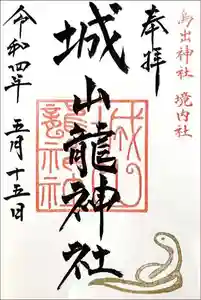 鳥出神社 境内社
奉拝
城山龍神社
城山龍神社
令和四年 五月十五日